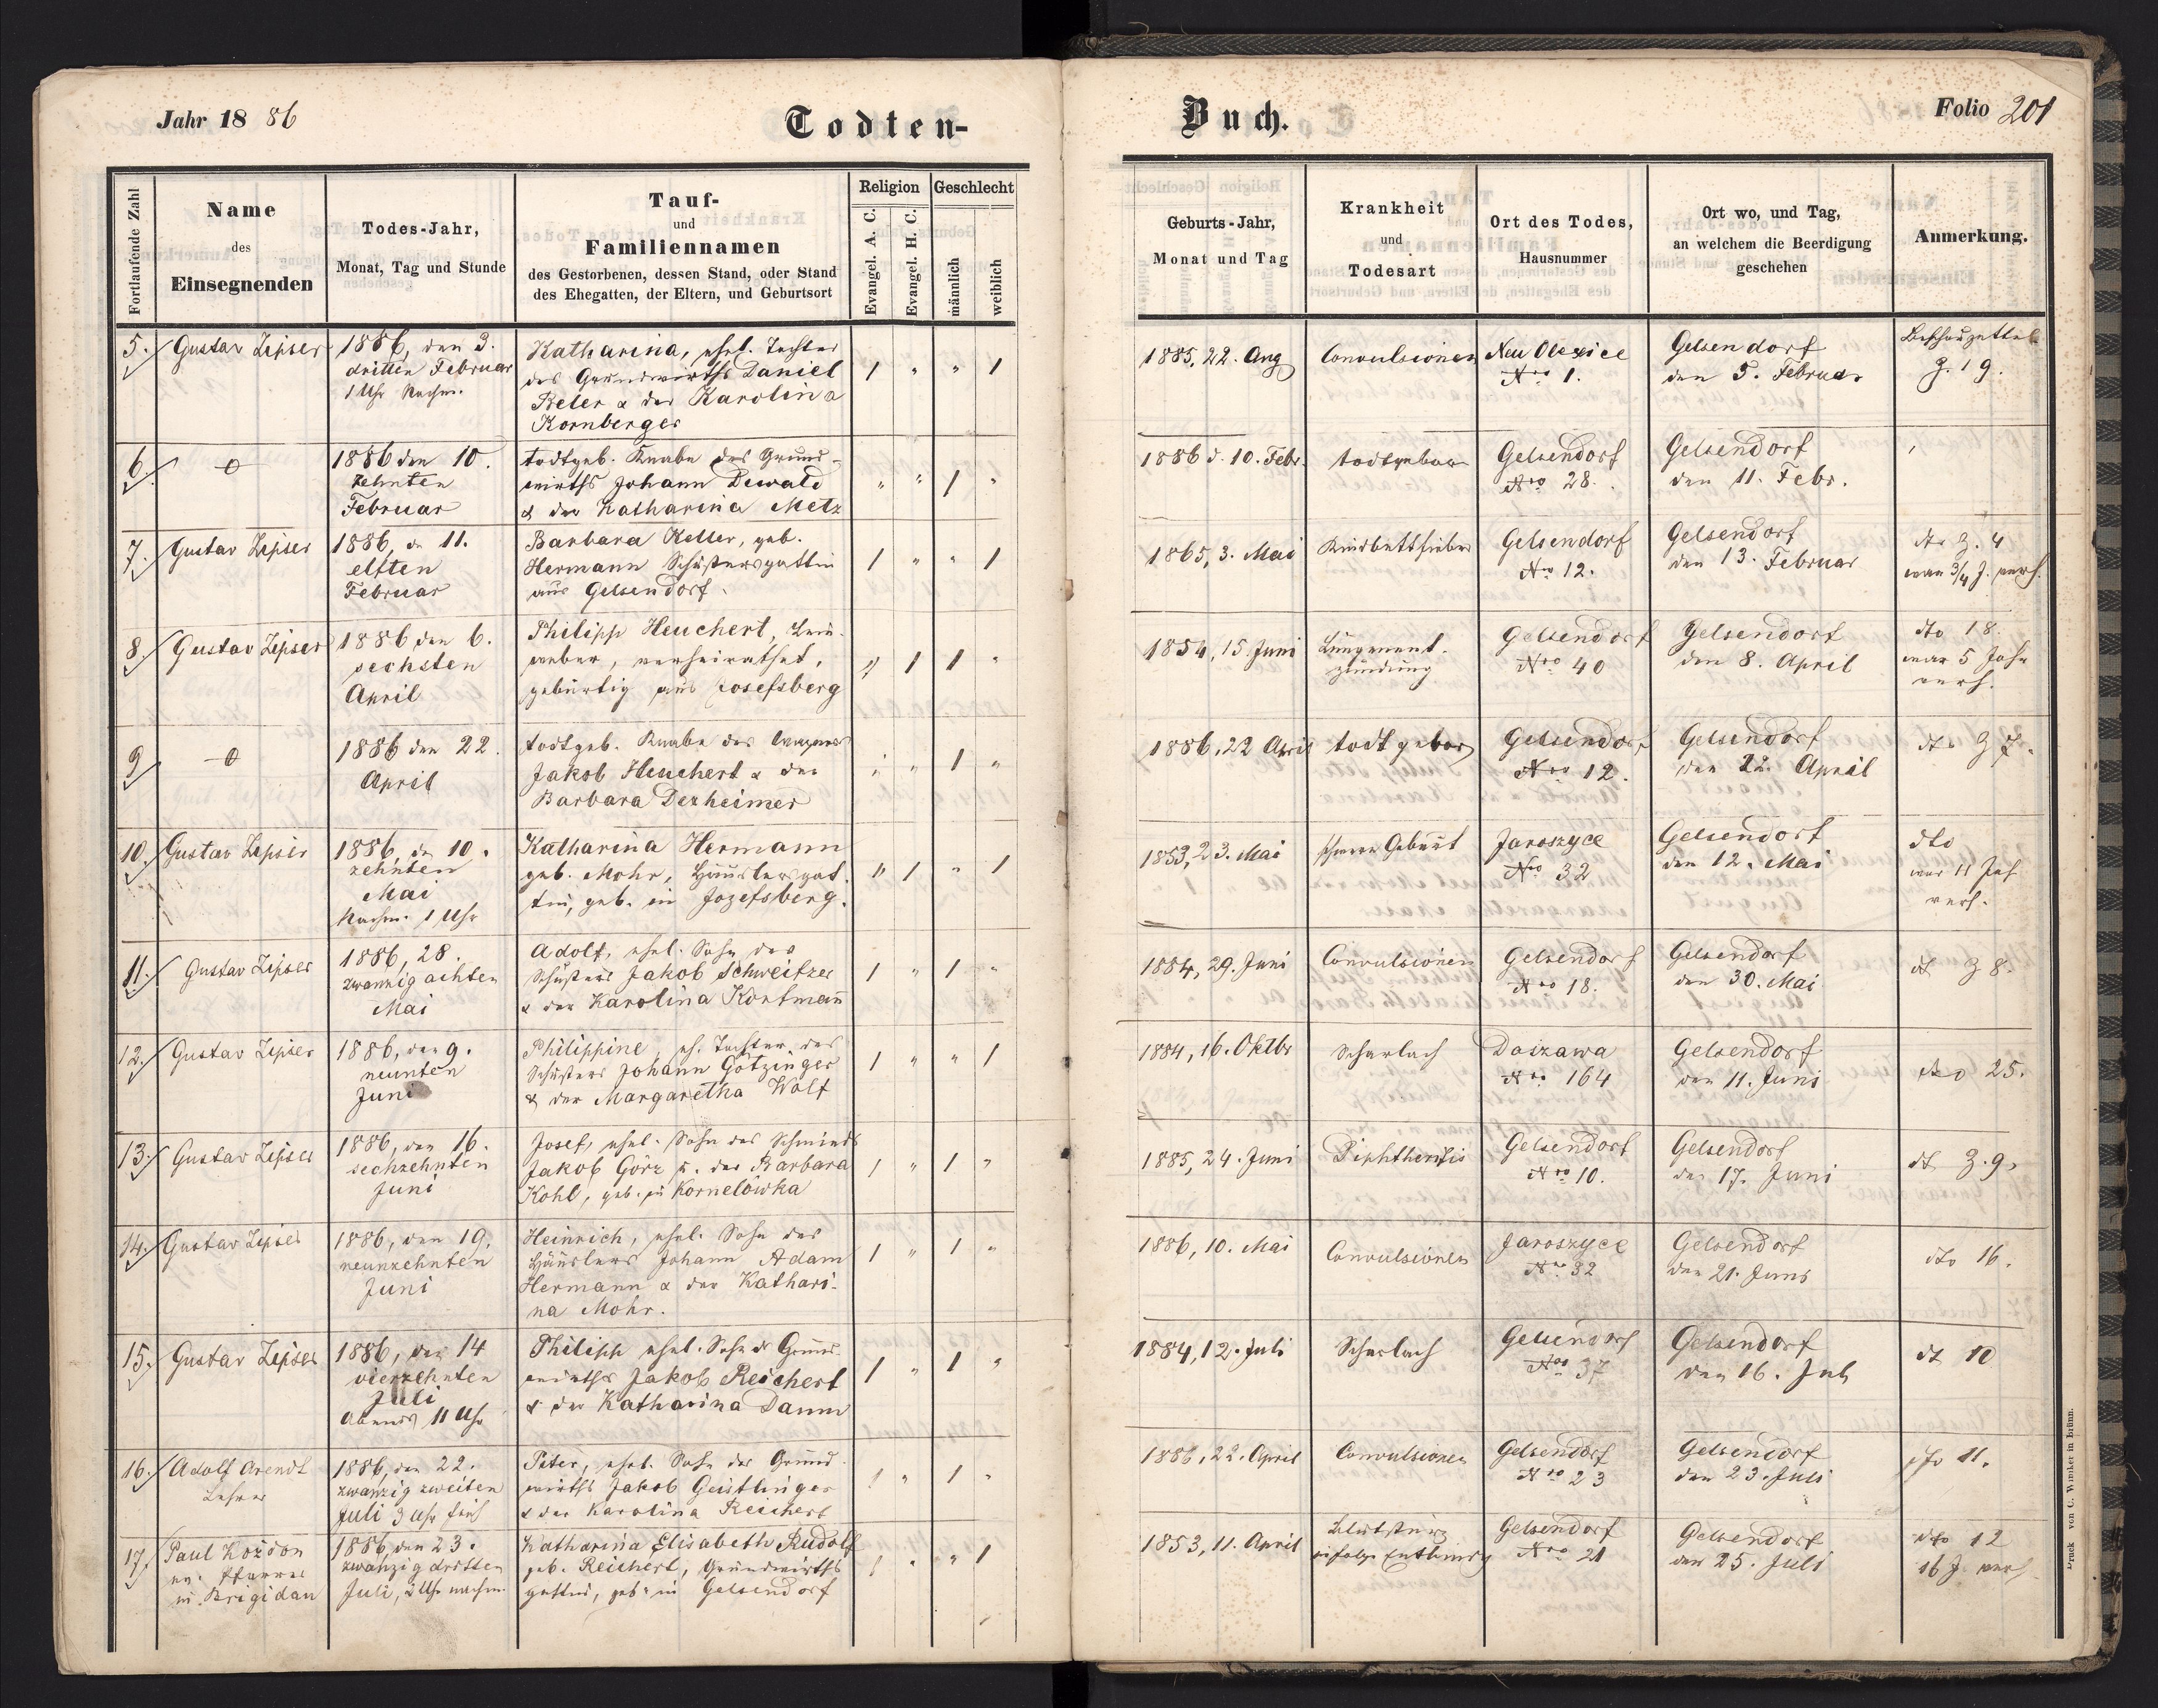 Jahr 18 86
Todten-
Fortlaufende Zahl
Name
des
Einsegnenden
Todes-Jahr,
Monat, Tag und Stunde
Tauf-
und
Familiennamen
des Gestorbenen, dessen Stand, oder Stand
des Ehegatten, der Eltern, und Geburtsort
Religion
Geschlecht
Evangel. A. C.
Evangel. H. C.
männlich
weiblich
5.
Gustav Zipser
1886, den 3.
dritten Februar
1 Uhr Nachm.
Katharina, ehel. Tochter
des Grundwirths Daniel
Keler & der Karolina
Kornberger
6.
0
1886 den 10.
zehnten
Februar
todtgeb. Knabe des Grund-
wirths Johann Dewald
& der Katharina Metz
7.
Gustav Zipser
1886, dn 11.
elften
Februar
Barbara Keller, geb.
Hermann Schustersgattin
aus Gelsendorf.
8.
Gustav Zipser
1886 den 6.
sechsten
April
Philipp Heuchert, Lein-
weber, verheirathet,
gebürtig aus Josefsberg
9
0
1886 den 22.
April
todtgeb. Knabe des Wagners
Jakob Heuchert & der
Barbara Derheimer
10.
Gustav Zipser
1886, dn 10.
zehnten
Mai
Nachm. 1 Uhr
Katharina Hermann
geb. Mohr, Häuslersgat-
tin, geb. in Jozefsberg.
11.
Gustav Zipser
1886, 28.
zwanzig achten
Mai
Adolf, ehel. Sohn des
Schusters Jakob Schweitzer
& der Karolina Kortmann
12.
Gustav Zipser
1886, den 9.
neunten
Juni
Philippine, eh. Tochter des
Schusters Johann Götzinger
& der Margaretha Wolf
13.
Gustav Zipser
1886, den 16.
sechzehnten
Juni
Josef, ehel. Sohn des Schmieds
Jakob Görz u. der Barbara
Kohl, geb. in Kornelówka
14.
Gustav Zipser
1886, den 19.
neunzehnten
Juni
Heinrich, ehel. Sohn des
Häuslers Johann Adam
Hermann & der Kathari-
na Mohr.
15.
Gustav Zipser
1886, den 14
vierzehnten
Juli
Abends 11 Uhr
Philipp ehel. Sohn ds Grund-
wirths Jakob Reichert
& der Katharina Damm
16.
Adolf Arendt
Lehrer
1886, den 22.
zwanzig zweiten
Juli 3 Uhr früh
Peter, ehel. Sohn des Grund-
wirths Jakob Geistlinger
& der Karolina Reichert
17.
Paul Koždon
ev. Pfarrer
in Brigidau
1886, den 23.
zwanzig dritten
Juli, 2 Uhr nachm.
Katharina Elisabeth Rudolf
geb. Reichert, Grundwirths-
gattin, geb. in Gelsendorf
Buch.
Folio 201
Geburts-Jahr,
Monat und Tag
Krankheit
und
Todesart
Ort des Todes,
Hausnummer
Ort wo, und Tag,
an welchem die Beerdigung
geschehen
Anmerkung.
1885, 22. Aug
Convulsionen
Neu Olexice
Nro 1.
Gelsendorf
den 5. Februar
Beschauzettel
Z. 19.
1886 d. 10. Febr.
todtgeboren
Gelsendorf
Nro 28.
Gelsendorf
den 11. Febr.
1865, 3. Mai
Kindbettfieber
Gelsendorf
Nro 12.
Gelsendorf
den 13. Februar
dto Z. 4
war 3/4 J. verh.
1854, 15. Juni
Lungenent-
zündung
Gelsendorf
Nro 40
Gelsendorf
den 8. April
dto 18.
war 5 Jahr
verh.
1886, 22 April
todtgeboren
Gelsendorf
Nro 12.
Gelsendorf
den 22. April
dto Z 7.
1853, 23. Mai
schwere Geburt
Jaroszyce
Nro 32
Gelsendorf
den 12. Mai
dto
war 11 Jah
verh.
1884, 29. Juni
Convulsionen
Gelsendorf
Nro 18.
Gelsendorf
den 30. Mai
dt Z 8.
1884, 16. Oktbr
Scharlach
Daszawa
Nro 164
Gelsendorf
den 11. Juni
dto 25.
1885, 24. Juni
Diphtheritis
Gelsendorf
Nro 10.
Gelsendorf
den 17. Juni
dt Z. 9.
1886, 10. Mai
Convulsionen
Jaroszyce
Nro 32
Gelsendorf
den 21. Juni
dto 16.
1884, 12. Juli
Scharlach
Gelsendorf
Nro 37
Gelsendorf
den 16. Juli
dt 10
1886, 22. April
Convulsionen
Gelsendorf
Nro 23
Gelsendorf
den 23. Juli
dto 11.
1853, 11. April
Blutsturz
infolge Entbindg
Gelsendorf
Nro 21
Gelsendorf
den 25. Juli
dto 12
16 J. verh.
Druck von C. Winiker in Brünn.